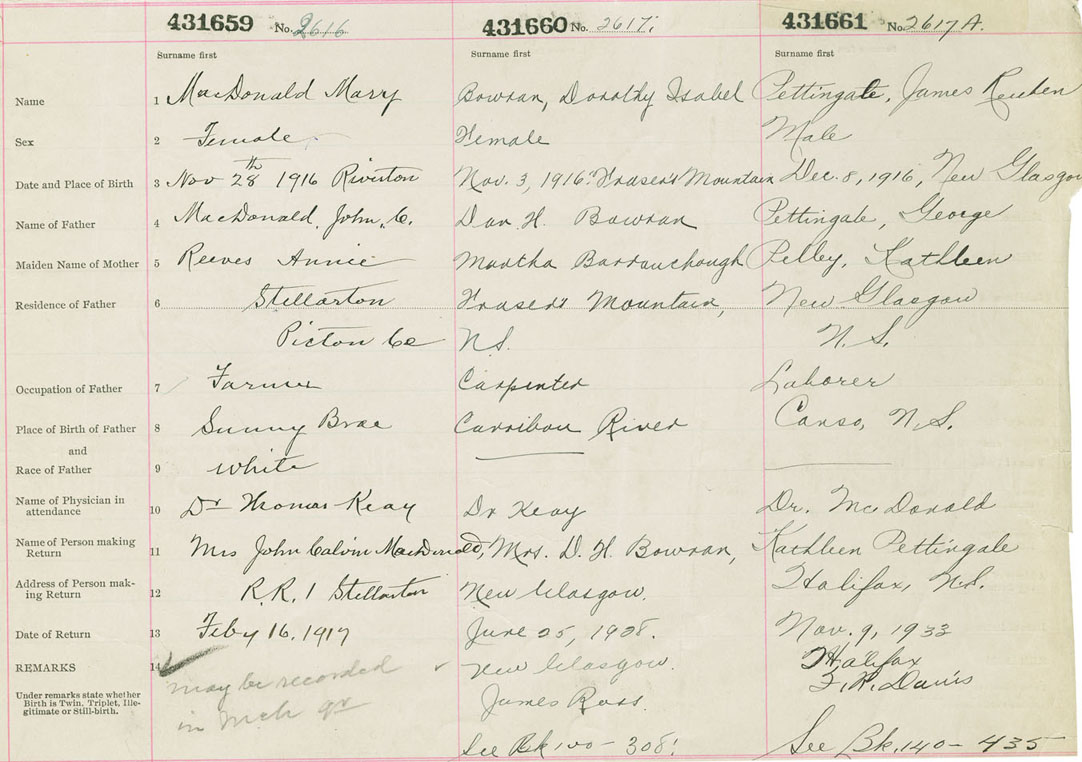 431659 No. 2616 431660 No. 2617i 431661 No. 2617A.
Surname first Surname first Surname first
Name 1 MacDonald Mary Bowran, Dorothy Isabel Pettingale, James Reuben
Sex 2 Female Female Male
Date and Place of Birth 3 Nov 28th 1916 Riverton Nov. 3, 1916. Fraser's Mountain Dec. 8, 1916, New Glasgow
Name of Father 4 MacDonald, John, C. Dan. H. Bowran Pettingale, George
Maiden Name of Mother 5 Reeves Annie Martha Barrauchough Pelley, Kathleen
Residence of Father 6 Stellarton Fraser's Mountain, New Glasgow
Pictou Co N.S. N.S.
Occupation of Father 7 Farmer Carpenter Laborer
Place of Birth of Father 8 Sunny Brae Carribou River Canso, N.S.
and
Race of Father 9 White
Name of Physician in
attendance 10 Dr Thomas Keay Dr Keay Dr. McDonald
Name of Person making
Return 11 Mrs John Calvin MacDonald, Mrs. D. H. Bowran, Kathleen Pettingale
Address of Person mak-
ing Return 12 R.R. 1 Stellarton New Glasgow. Halifax, N.S.
Date of Return 13 Feby 16, 1917 June 25, 1928. Nov. 9, 1933
REMARKS 14 may be recorded New Glasgow. Halifax
Under remarks state whether
Birth is Twin, Triplet, Ille-
gitimate or Still-birth.
in Mch qr James Ross. F. R. Davis
See Bk 100 - 308. See Bk. 140 - 435